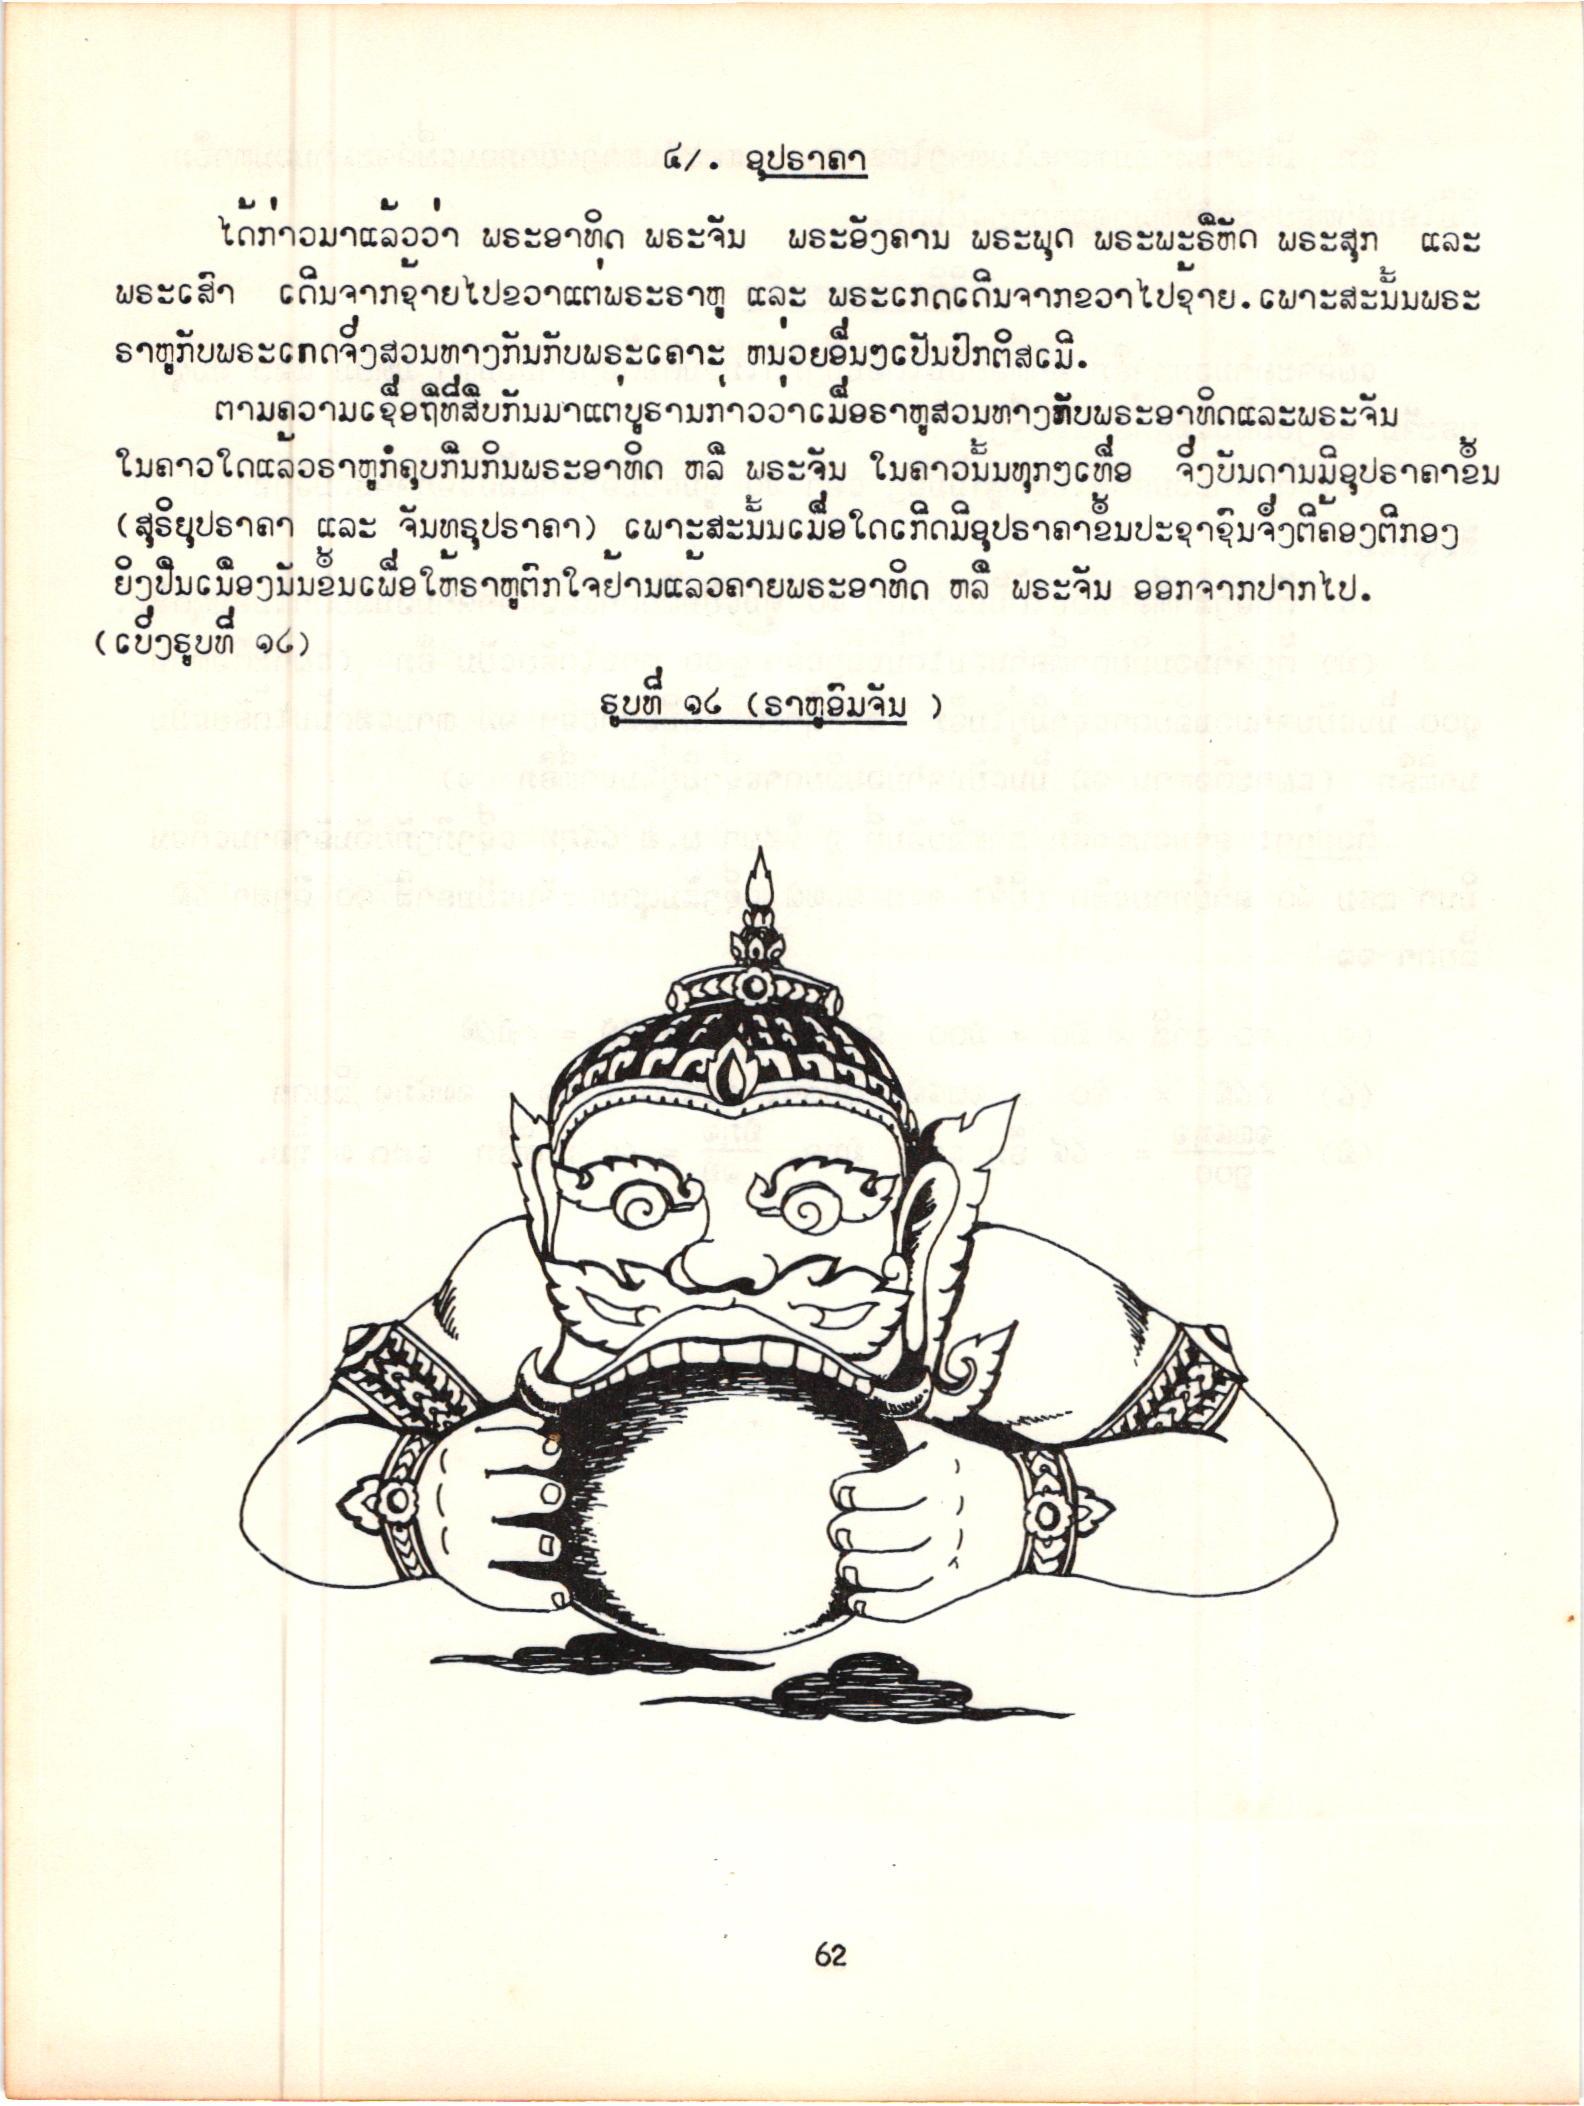 ໔/. ອຸປຣາຄາ
ໄດ້ກ່າວມາແລ້ວວ່າ ພຣະອາທິດ ພຣະຈັນ ພຣະອັງຄານ ພຣະພຸດ ພຣະພະຣິຫັດ ພຣະສຸກ ແລະ
ພຣະເສົາ ເດີນຈາກຊ້າຍໄປຂວາແຕ່ພຣະຣາຫູ ແລະ ພຣະເກດເດີນຈາກຂວາໄປຊ້າຍ. ເພາະສະນັ້ນພຣະ
ຣາຫູກັບພຣະເກດຈຶ່ງສວນທາງກັນກັບພຣະເຄາະ ຫນ່ວຍອື່ນໆເປັນປົກຕິສເມີ.
ຕາມຄວາມເຊື່ອຖືທີ່ສືບກັນມາແຕ່ບູຣານກ່າວວ່າເມື່ອຣາຫູສວນທາງກັບພຣະອາທິດແລະພຣະຈັນ
ໃນຄາວໃດແລ້ວຣາຫູກໍຄຸບກືນກິນພຣະອາທິດ ຫລື ພຣະຈັນ ໃນຄາວນັ້ນທຸກໆເທື່ອ ຈຶ່ງບັນດານມີອຸປຣາຄາຂຶ້ນ
(ສຸຣິຍຸປຣາຄາ ແລະ ຈັນທຣຸປຣາຄາ) ເພາະສະນັ້ນເມື່ອໃດເກີດມີອຸປຣາຄາຂຶ້ນປະຊາຊົນຈຶ່ງຕີຄ້ອງຕີກອງ
ຍິງປືນເນືອງນັນຂຶ້ນເພື່ອໃຫ້ຣາຫູຕົກໃຈຢ້ານແລ້ວຄາຍພຣະອາທິດ ຫລື ພຣະຈັນ ອອກຈາກປາກໄປ.
(ເບິ່ງຮູບທີ່ ໑໘)
ຮູບທີ່ ໑໘ (ຣາຫູອົມຈັນ )
62